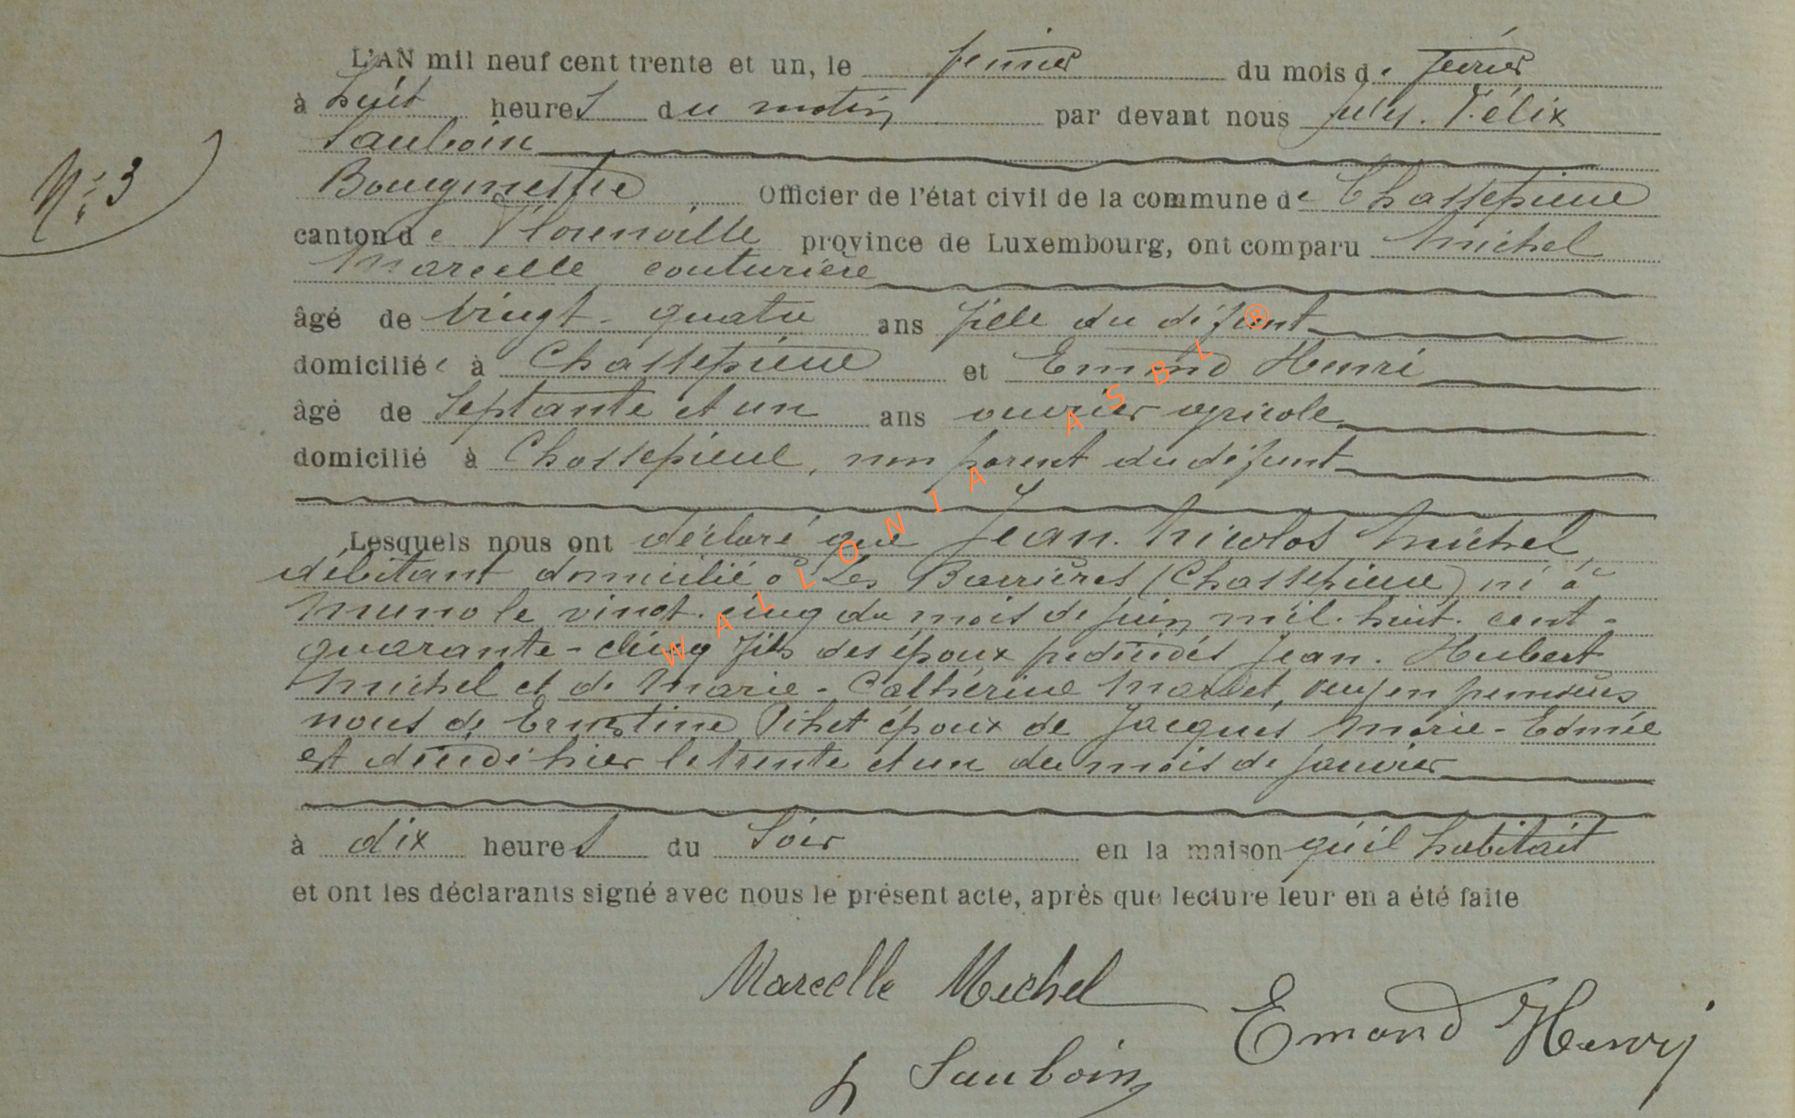 L'AN mil neuf cent trente et un, le premier du mois de février
à huit heures du matin par devant nous Jules. Félix
Sauboin
N° 3
Bourgmestre Officier de l'état civil de la commune de Chassepierre
canton de Florenville province de Luxembourg, ont comparu Michel
Marcelle couturière
âgé de vingt-quatre ans fille du défunt
domiciliée à Chassepierre et Emond Henri
âgé de septante et un ans ouvrier agricole
domicilié à Chassepierre, non parent du défunt
Lesquels nous ont déclaré que Jean. Nicolas Michel
débitant domicilié à Les Barrières (Chassepierre) né à
Muno le vingt-cinq du mois de juin mil. huit. cent-
quarante-cinq fils des époux prédécédés Jean. Hubert
Michel et de Marie-Catherine veuf en premières
noces de Ernestine Pihet époux de Jacques Marie-Edmée
est décédé hier le trente et un du mois de janvier
à dix heures du soir en la maison qu'il habitait
et ont les déclarants signé avec nous le présent acte, après que lecture leur en a été faite
Marcelle Michel
Emond Henry
J Sauboin
WALLONIA ASBL ®